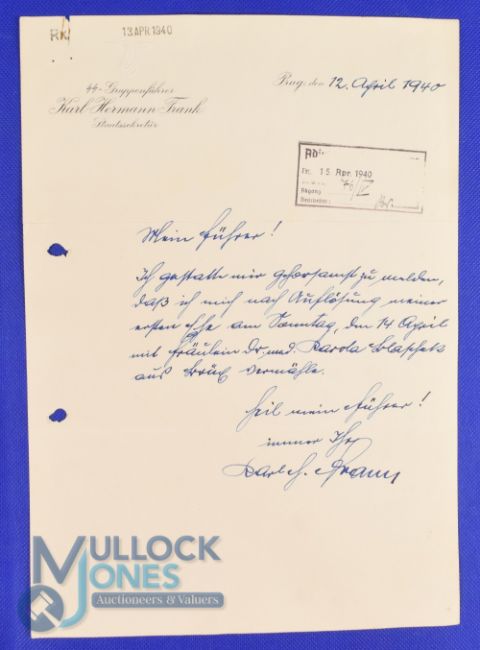 RK 13. APR. 1940
SS-Gruppenführer
Karl Hermann Frank
Staatssekretär
Prag, den 12. April 1940
Ein. 15. Apr. 1940
76/IV
Mein Führer!
Ich gestatte mir gehorsamst zu melden,
daß ich mich nach Auflösung meiner
ersten Ehe am Sonntag, den 14. April
mit Fräulein Dr. med. Karola Blaschek
aus Brüx vermähle.
Heil mein Führer!
immer Ihr
Karl H. Frank
MULLOCK
JONES
Auctioneers & Valuers